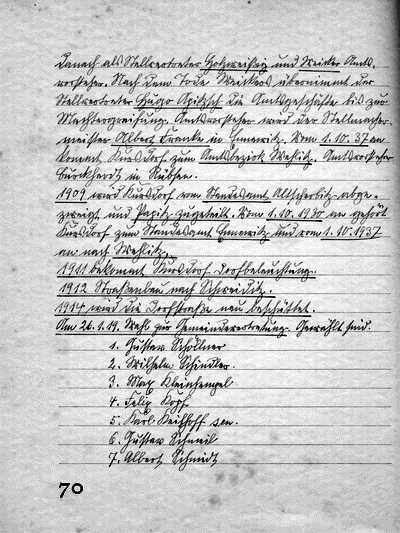 Danach als Stellvertreter Holzweißig und Weicker Amts-
vorsteher. Nach dem Tode Weickers übernimmt der
Stellvertreter Hugo Apitzsch die Amtsgeschäfte bis zur
Machtergreifung. Amtsvorsteher wird der Stellmacher-
meister Albert Francke in Ennewitz. Vom 1.10.37 an
kommt Kursdorf zum Amtsbezirk Wehlitz. Amtsvorsteher
Burckhardt in Rübsen.
1909 wird Kursdorf vom Standesamt Altscherbitz abge-
zweigt und Papitz zugeteilt. Vom 1.10.1930 an gehört
Kursdorf zum Standesamt Ennewitz und vom 1.10.1937
an nach Wehlitz.
1911 bekommt Kursdorf Dorfbeleuchtung.
1912 Straßenbau nach Schkeuditz.
1914 wird die Dorfstraße neu beschüttet.
Am 26.1.19. Wahl zur Gemeindevertretung. Gewählt sind.
1. Gustav Schöllner
2. Wilhelm Schindler.
3. Max Kleinhempel
4. Felix Kopf
5. Karl Keithoff sen.
6. Gustav Schmeil
7. Albert Schmidt
70